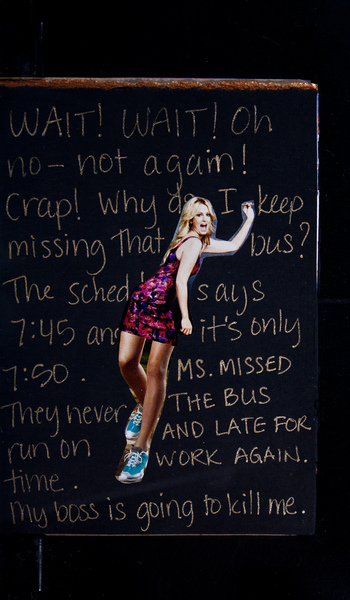 WAIT! WAIT! Oh
no – not again!
Crap! Why do I keep
missing that bus?
The sched says
7:45 and it's only
7:50.
They never
run on
time.
My boss is going to kill me.
MS. MISSED
THE BUS
AND LATE FOR
WORK AGAIN.